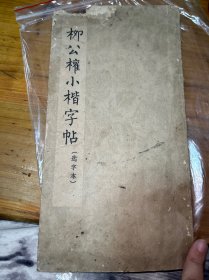 柳公權小楷字帖
(选字本)